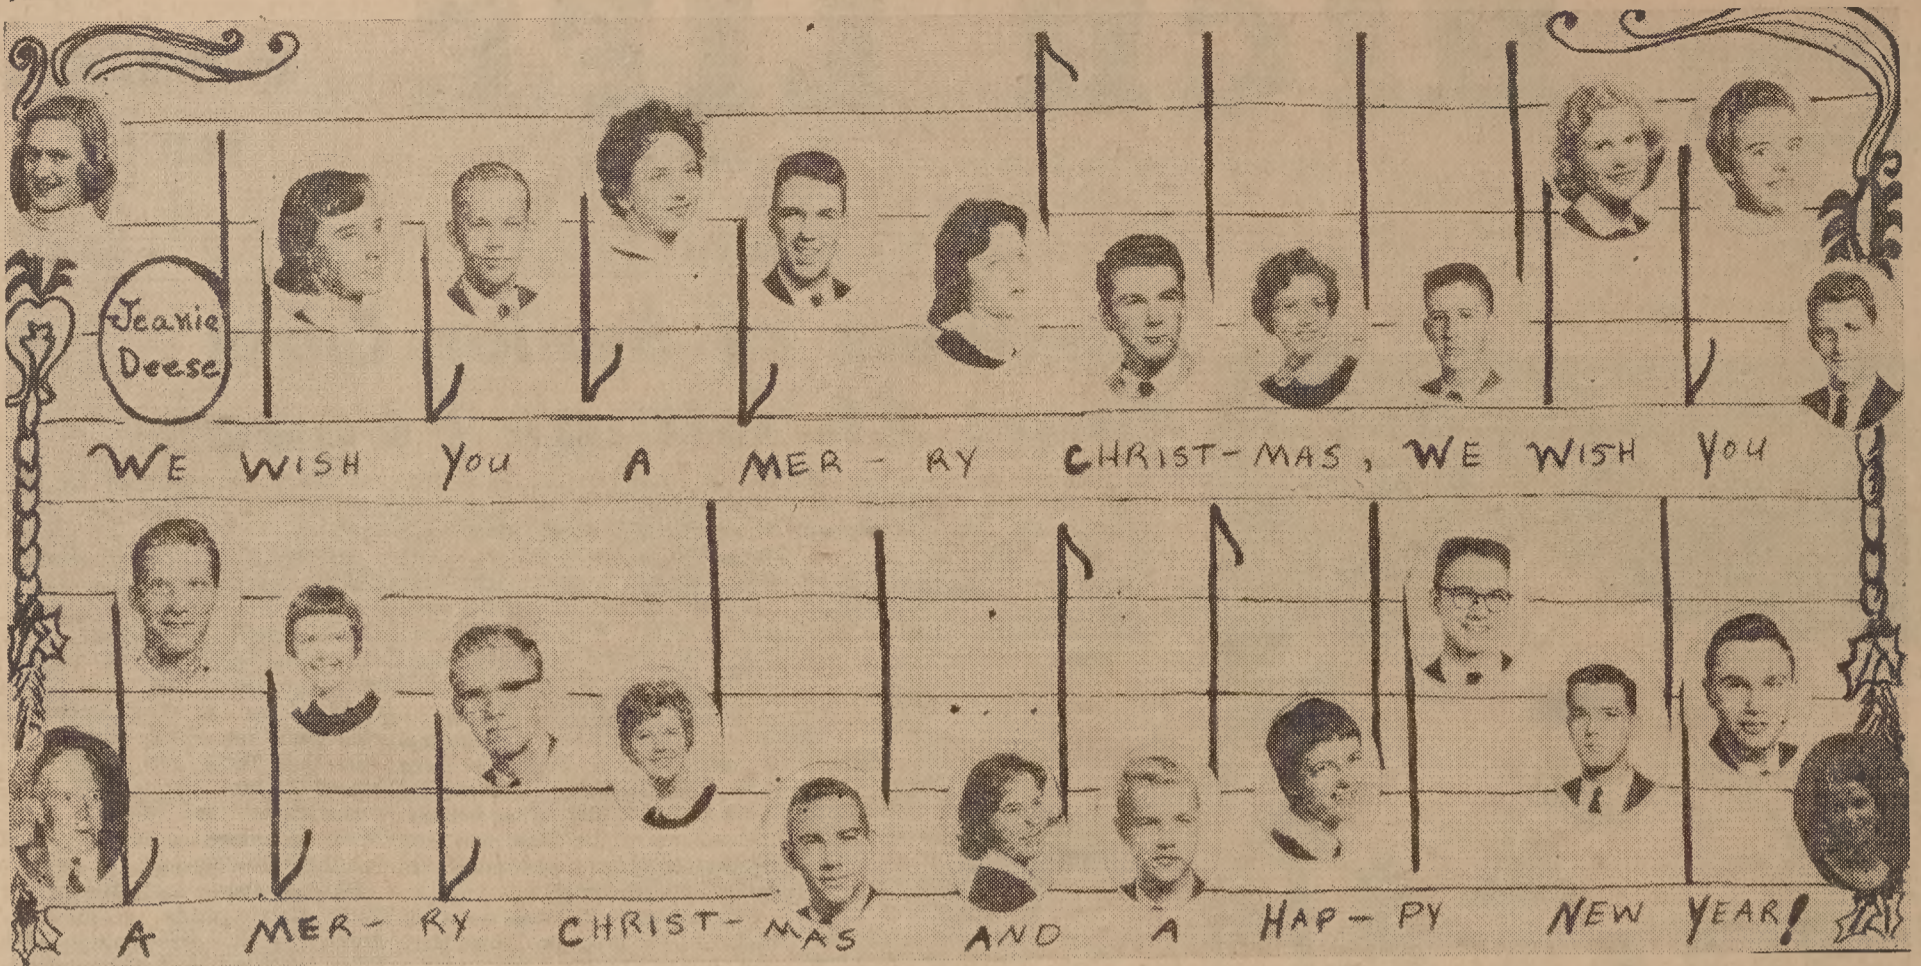 Jeanie
Deese
WE WISH YOU A MER - RY CHRIST-MAS, WE WISH YOU
A MER- RY CHRIST- MAS AND A HAP- PY NEW YEAR!